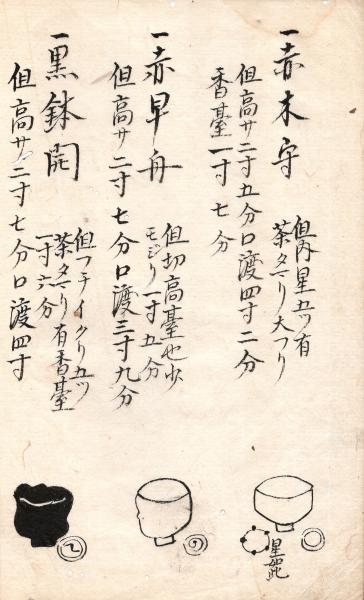 一赤木守
但内星五ツ有
茶タマリ大フリ
但高サ二寸五分口渡四寸二分
香臺一寸七分
一赤早舟
但切高臺也少
モジリ一寸五分
但高サ二寸七分口渡三寸九分
一黒鉢開
但フチイクリ五ツ
茶タマリ有香臺
一寸六分
但高サ二寸七分口渡四寸
星
如此